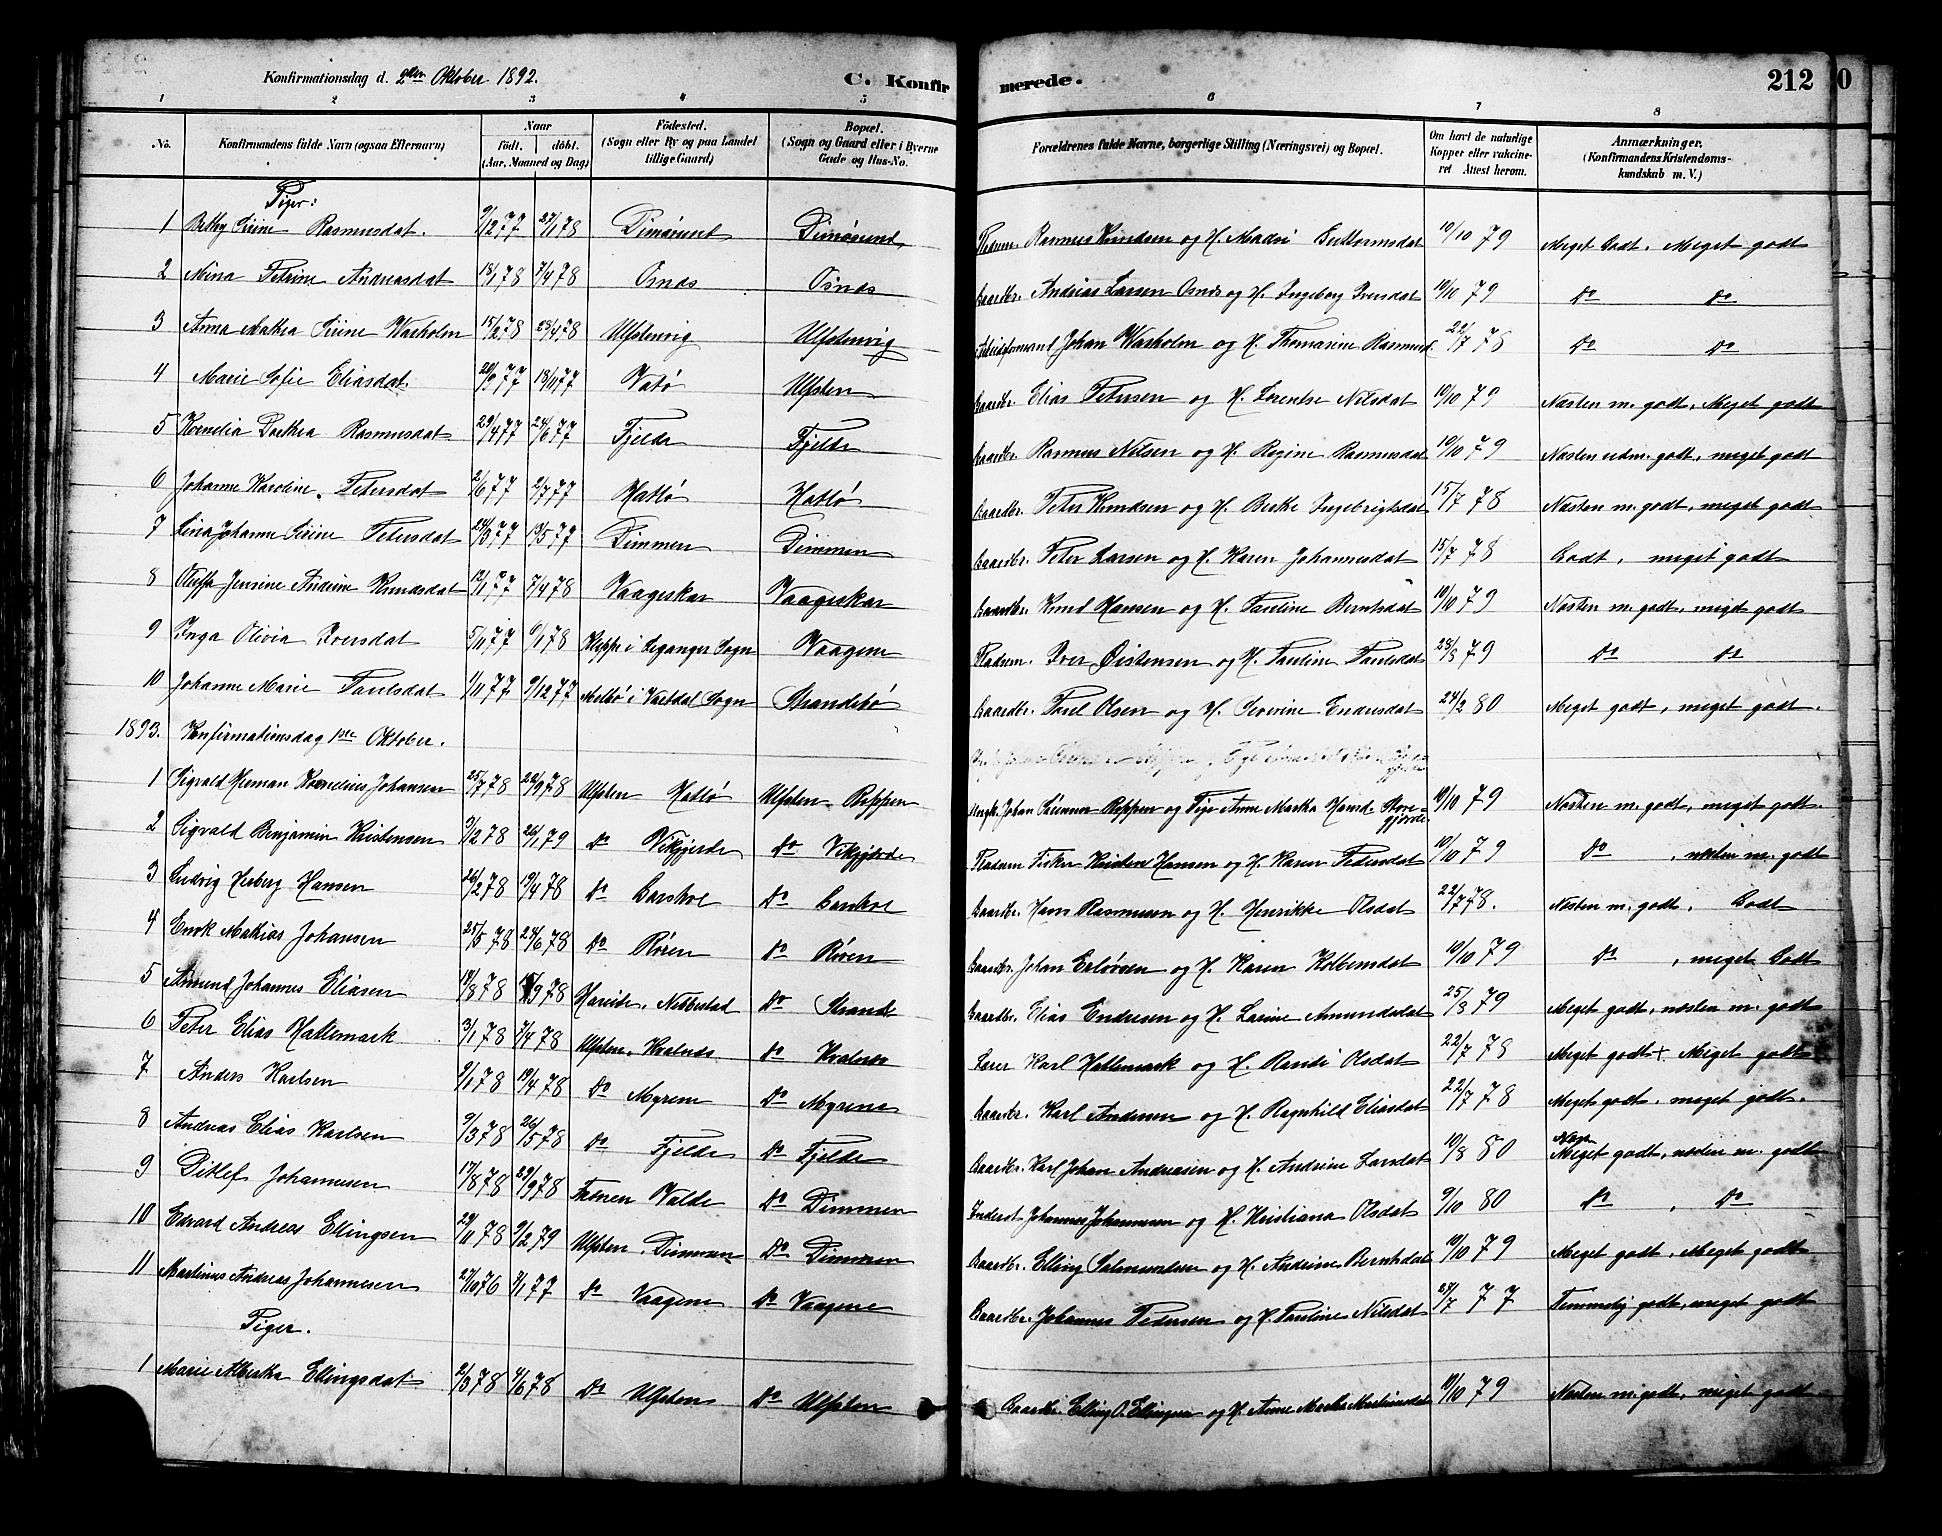 Konfirmationsdag d. 2den Oktober 1892. C. Konfirmerede. 212
1 2 3 4 5 6 7 8
No. Konfirmandens fulde Navn (ogsaa Efternavn) Naar födt. döbt. (Aar, Maaned og Dag) Födested. (Sogn eller By og paa Landet tillige Gaard) Bopæl. (Sogn og Gaard eller i Byerne Gade og Hus-No. Forældrenes fulde Navne, borgerlige Stilling (Næringsvei) og Bopæl. Om havt de naturlige Kopper eller vakcineret Attest herom. Anmærkninger. (Konfirmandens Kristendomskundskab m. V.)
Piger:
1 Bethy Sirine Rasmusdat. 9/12 77 27/1 78 Dimøsund Dimøsund Pladsm. Rasmus Knudsen og H. Guttormsdat 10/10 79 Meget Godt. Meget godt
2 Mina Petrine Andreasdat 18/1 78 7/4 78 Osnes Osnes Gaardbr. Andreas Larsen Osnes og H. Ingeborg Iversdat 10/10 79 Do Do
3 Anna Mathea Sirine Warholm 15/2 78 23/4 78 Ulfstenvig Ulfstenvig Johan Warholm og H. Thomasine Rasmusd. 22/7 78 Do Do
4 Marie Sofie Eliasdat 13/11 77 Vatø Ulfsten Gaardbr. Elias Petersen og H. Lorentse Nilsdat 10/10 79 Næsten m. godt, Meget godt
5 Kornelia Dorthea Rasmusdat 29/4 77 24/6 77 Fjelde Fjelde Gaardbr. Rasmus Nilsen og H. Regine Rasmusdat 10/10 79 Næsten udm. godt, meget godt
6 Johanne Karoline Petersdat 2/6 77 2/7 77 Hatlø Hatlø Gaardbr. Peter Knudsen og H. Berthe Ingebrigtsdat 15/7 78 Næsten m. godt, meget godt
7 Lina Johanne Sirine Petersdat 24/3 77 13/5 77 Dimmen Dimmen Gaardbr. Peter Larsen og H. Karen Johannesdat 15/7 78 Godt, meget godt
8 Oluffa Jensine Andrine Knudsdat 7/4 78 Vaageskar Vaageskar Gaardbr. Knud Hansen og H. Pauline Berntsdat 10/10 79 Næsten m. godt, meget godt
9 Inga Olivia Iversdat 5/11 77 6/1 78 Kleppe i Leganger Sogn Vaagene Pladsm. Iver Øistensen og H. Pauline Paulsdat 28/8 79 Do Do
10 Johanne Marie Paulsdat 1/11 77 9/12 77 i Vartdal Sogn Strandebø Gaardbr. Paul Olsen og H. Severine Endresdat 24/2 80 Meget godt, meget godt.
1893. Konfirmationsdag 1ste Oktober.
1 Sigvald Herman Kornelius Johansen 25/7 78 22/9 78 Ulfsten Hatlø Ulfsten Reppen Ungk. Johan Reppen og Pige Anne Martha Hansd. Storegjerde 10/10 79 Næsten m. godt, meget godt.
2 Sigvald Benjamin Kristensen 9/12 78 26/1 79 Do Vikgjerde Do Vikgjerde Pladsm Fisker Kristen Hansen og H. Karen Pedersdat 10/10 79 Do, næsten m. godt
3 Ludvig Herberg Hansen 26/2 78 19/4 78 Do Garshol Do Garshol Gaardbr. Hans Rasmussen og H. Henrikke Olsdat 22/7 78. Næsten m. godt. Godt
4 Enok Mathias Johansen 25/5 78 24/6 78 Do Røren Do Røren Gaardbr. Johan Erlovsen og H. Karen Kolbensdat 10/10 79 Do, meget Godt
5 Amund Johannes Eliasen 18/8 78 15/9 78 Hareide, Nebbestad Do Strande Gaardbr. Elias Endresen og H. Larine Amundsdat 25/8 79 Meget godt, næsten m. godt
6 Peter Elias Hattemark 3/1 78 7/4 78 Ulfsten, Kvalnes Do Kvalnes Lærer Karl Hattemark og H. Randi Olsdat 22/7 78 Meget godt + Meget godt
7 Anders Karlsen 9/1 78 19/4 78 Do Myrene Do Myrene Gaardbr. Karl Andersen og H. Ragnhild Eliasdat 22/7 78 Meget godt, meget godt.
8 Andreas Elias Karlsen 9/3 78 26/5 78 Do Fjelde Do Fjelde Gaardbr. Karl Johan Andreasen og H. Andrine Larsdat 10/8 80 Meget godt, næsten m. godt
9 Ditlef Johannesen 17/8 78 29/9 78 Volde Do Dimmen Inderst Johannes Johannesen og H. Kristiana Olsdat 9/10 80 Do, Do
10 Edvard Andreas Ellingsen 29/11 78 9/2 79 Ulfsten, Dimmen Do Dimmen Gaardbr. Elling Salomonsen og H. Andrine Berntsdat 10/10 79 Meget godt, Meget godt
11 Martinus Andreas Johannesen 27/10 76 7/1 77 Do Vaagene Do Vaagene Gaardbr. Johannes Pedersen og H. Pauline Nilsdat 27/7 77 Temmelig godt, meget godt
Piger.
1 Marie Albertha Ellingsdat 2/3 78 4/6 78 Do Ulfsten Do Ulfsten Gaardbr. Elling O. Ellingsen og H. Anne Marta Martinusdat 10/10 79 Næsten m. godt, meget godt